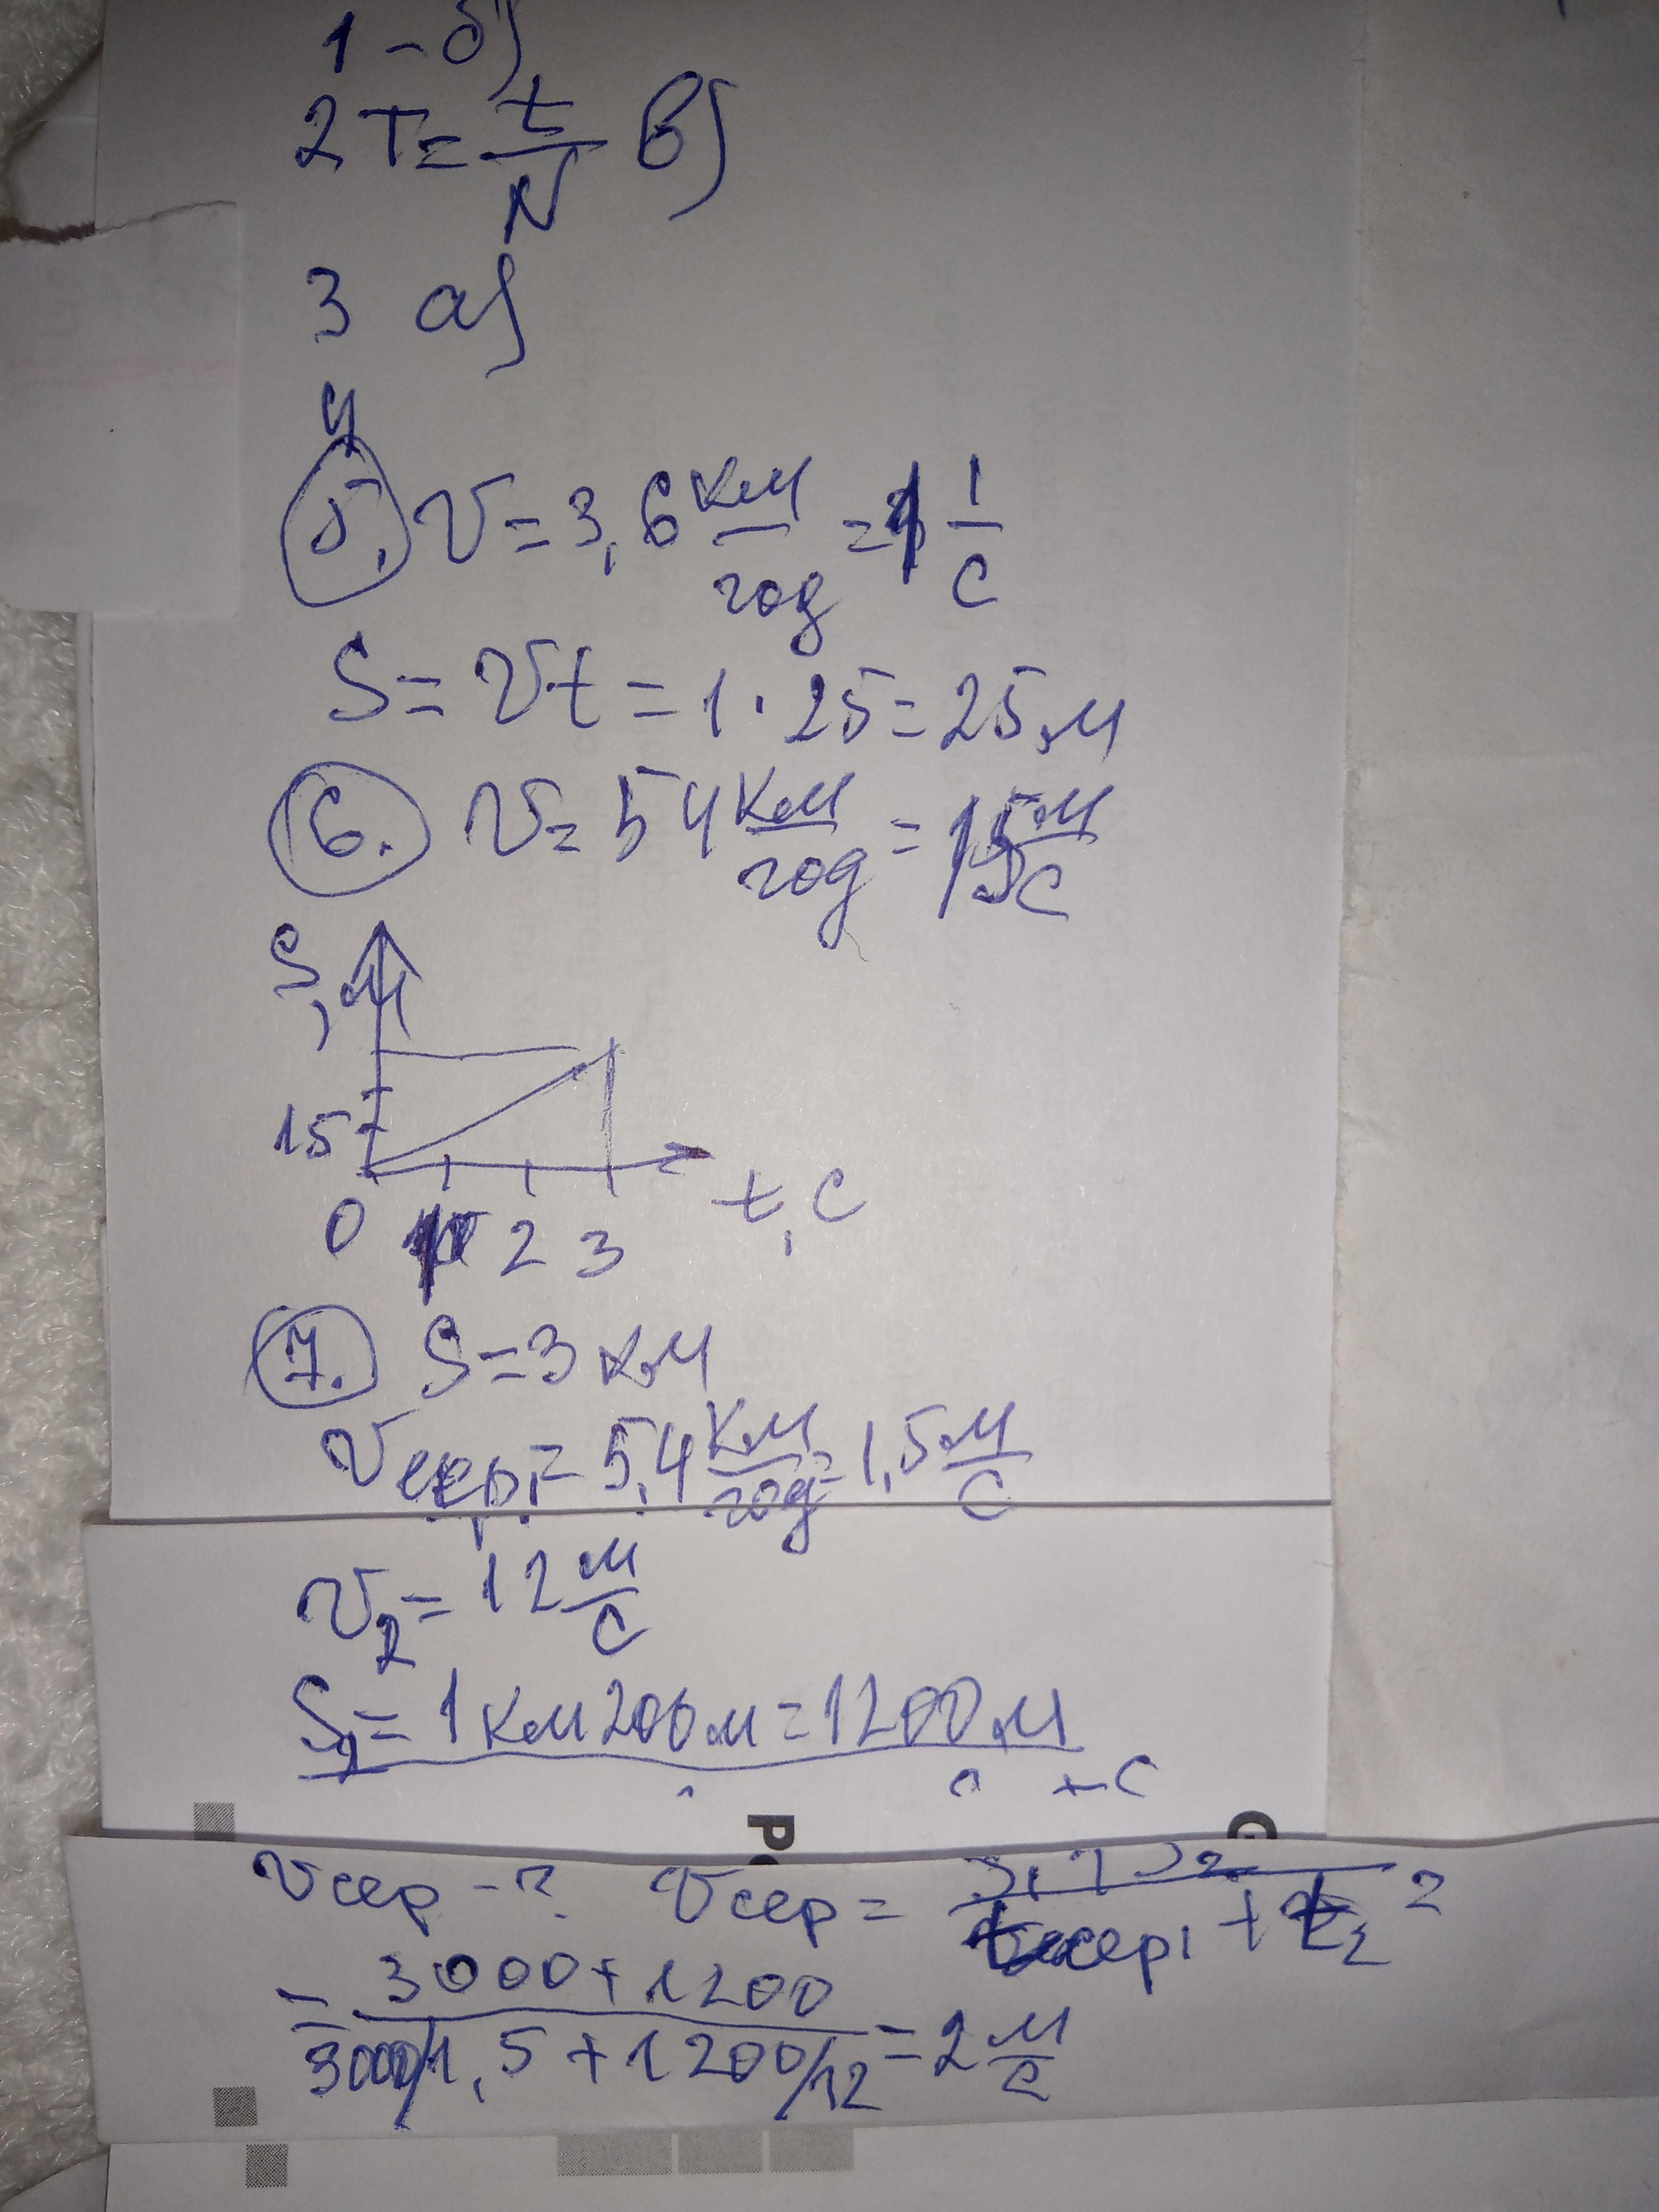 1 - б)
2 T = t/N в)
3 а)
4
5. V = 3,6 км/год = 1 1/с
S = Vt = 1 · 25 = 25 м
6. V = 54 км/год = 15 м/с
S, м
15
0 1 2 3 t, с
7. S = 3 км
Vсер1 = 5,4 км/год = 1,5 м/с
V2 = 12 м/с
S2 = 1 км 200 м = 1200 м
Vсер - ? Vсер =
= (3000 + 1200)/(3000/1,5 + 1200/12) = 2 м/с